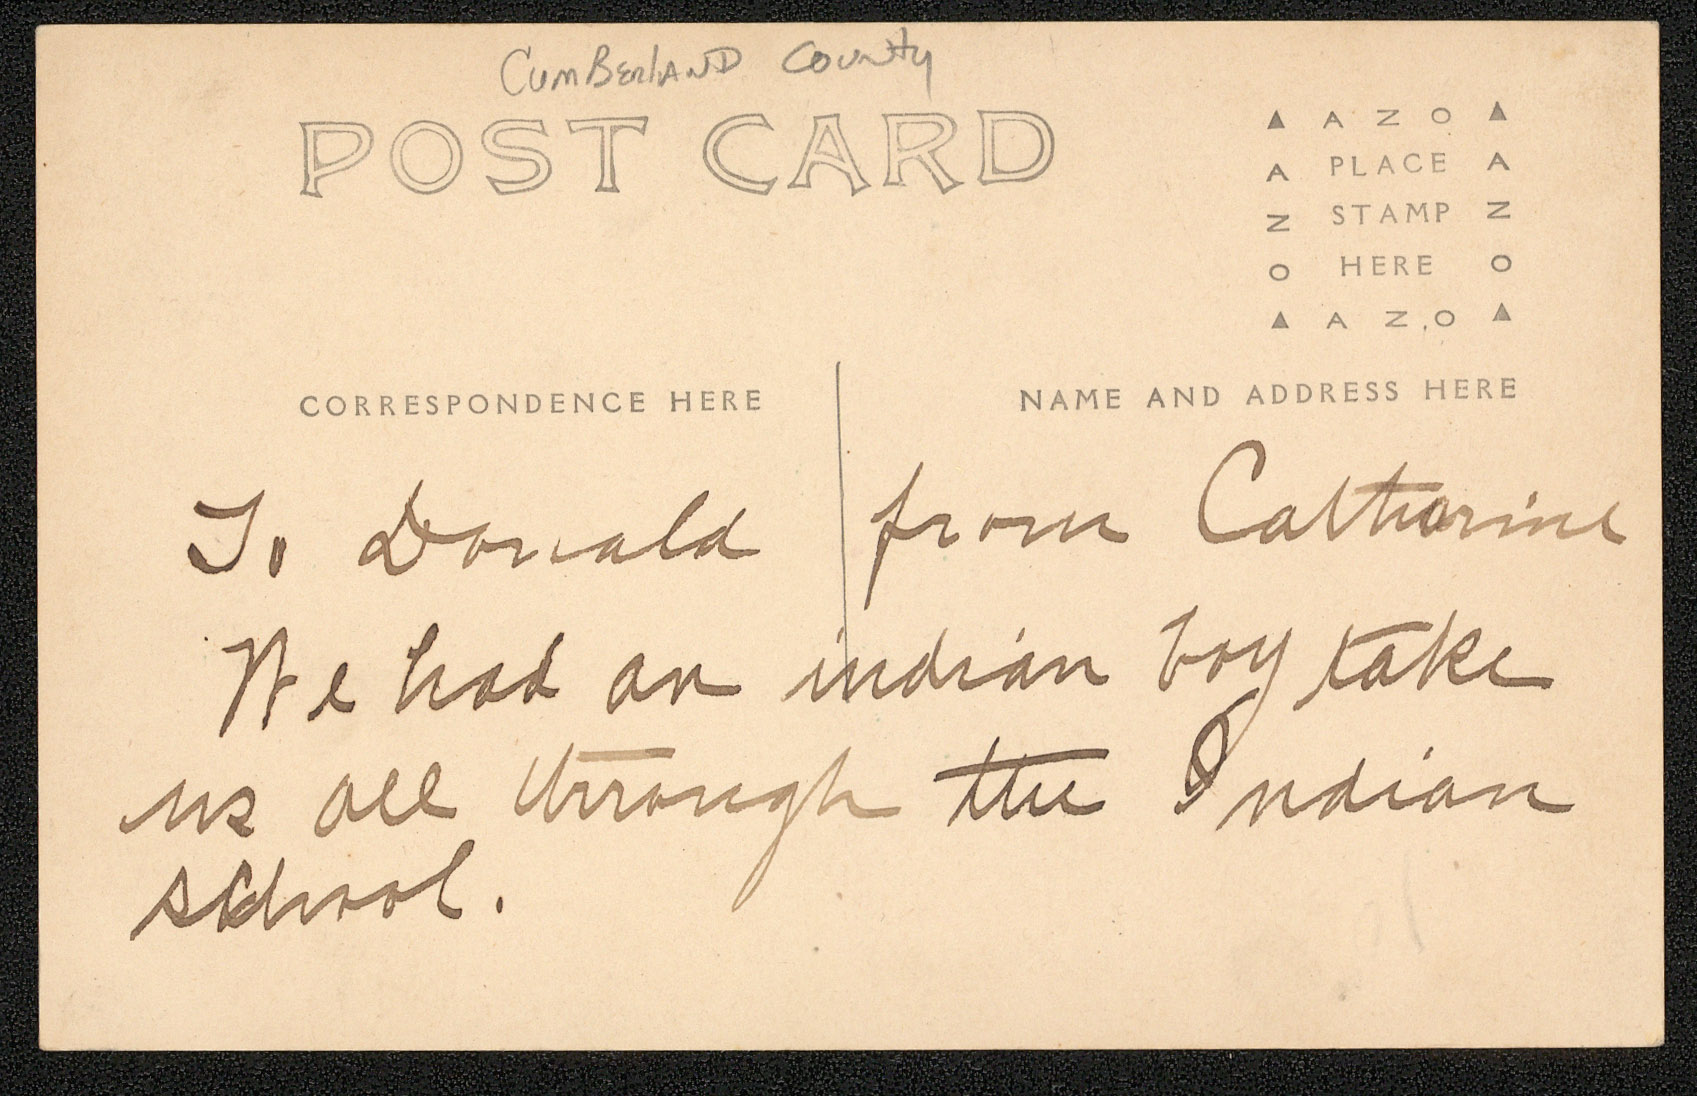 CUMBERLAND COUNTY
POST CARD
▲ A Z O ▲
A PLACE A
Z STAMP Z
O HERE O
▲ A Z O ▲
CORRESPONDENCE HERE
NAME AND ADDRESS HERE
To Donald from Catharine
We had an indian boy take
us all through the Indian
school.